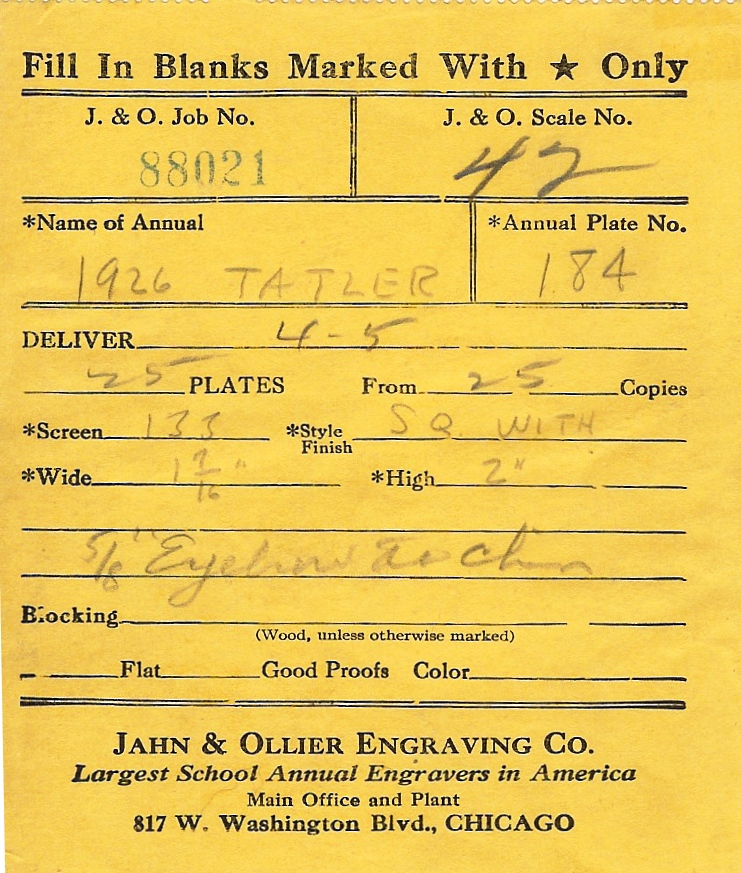 Fill In Blanks Marked With ★ Only
J. & O. Job No. J. & O. Scale No.
88021 42
*Name of Annual *Annual Plate No.
1926 TATLER 184
DELIVER 4-5
25 PLATES From 25 Copies
*Screen 133 *Style Finish SQ WITH
*Wide 1 9/16" *High 2"
5/8" Eyebrow to Chin
Blocking
(Wood, unless otherwise marked)
Flat Good Proofs Color
JAHN & OLLIER ENGRAVING CO.
Largest School Annual Engravers in America
Main Office and Plant
817 W. Washington Blvd., CHICAGO